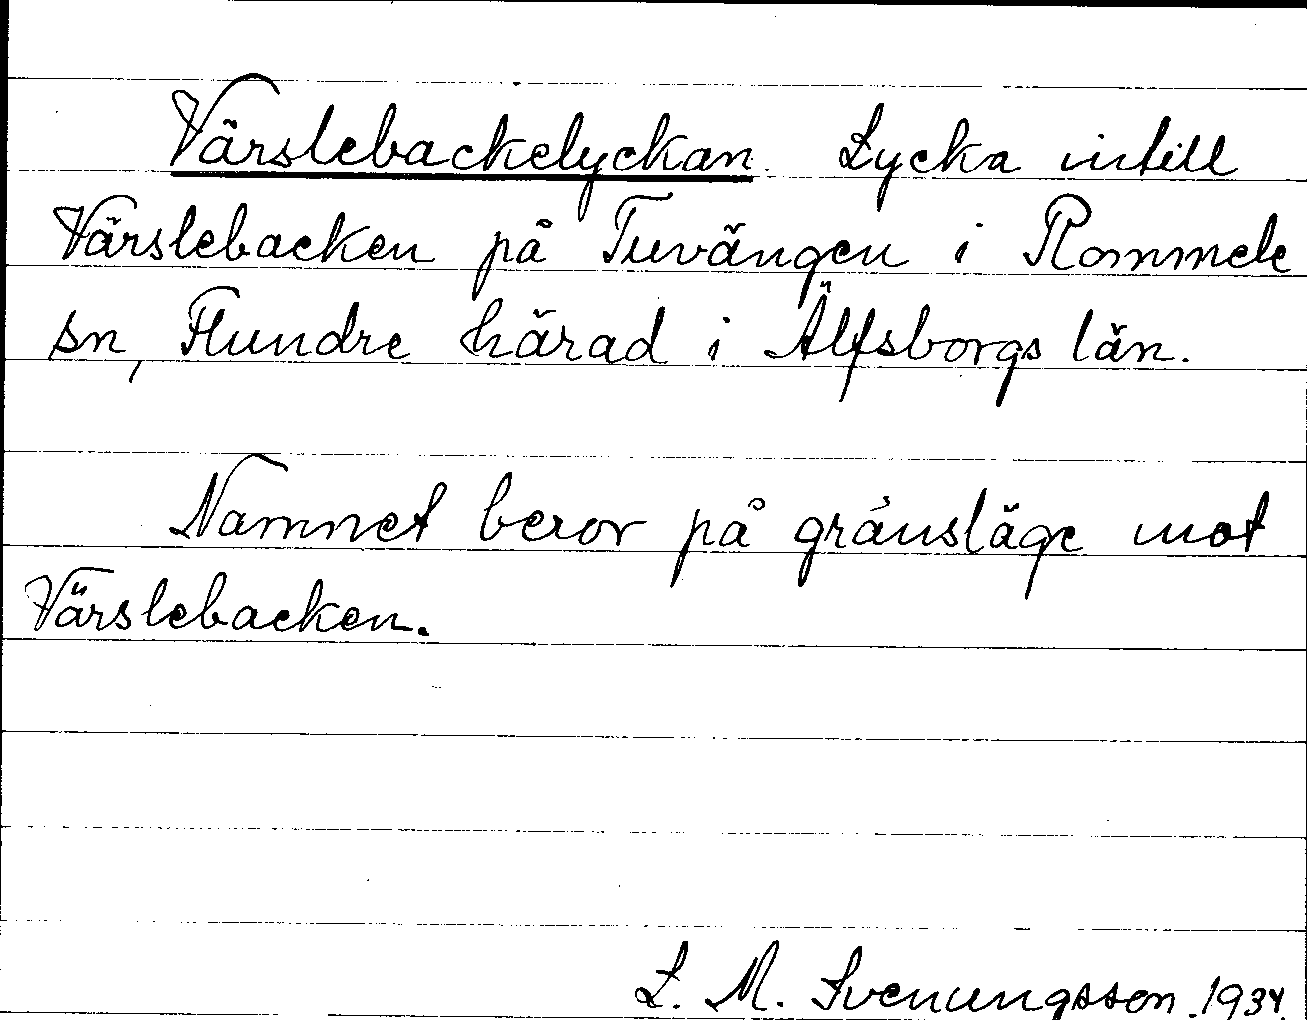 Värslebackelyckan. Lycka intill
Värslebacken på Tuvängen i Rommele
sn, Flundre härad i Älfsborgs län.
Namnet beror på gränsläge mot
Värslebacken.
L. M. Svenungsson. 1934.